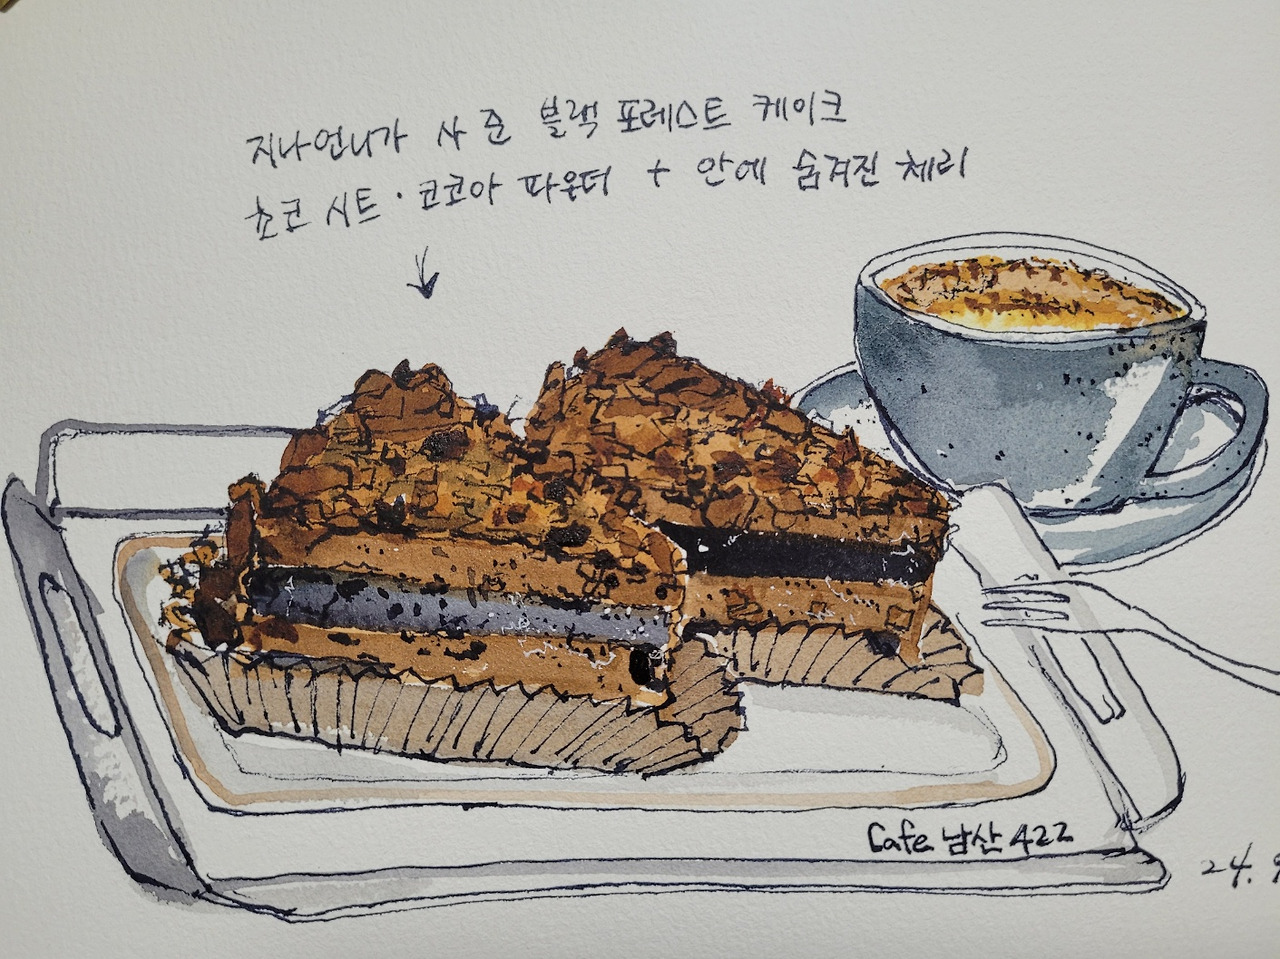 지나언니가 사 준 블랙 포레스트 케이크
초코 시트·코코아 파운더 + 안에 숨겨진 체리
Cafe 남산 422
24. 9